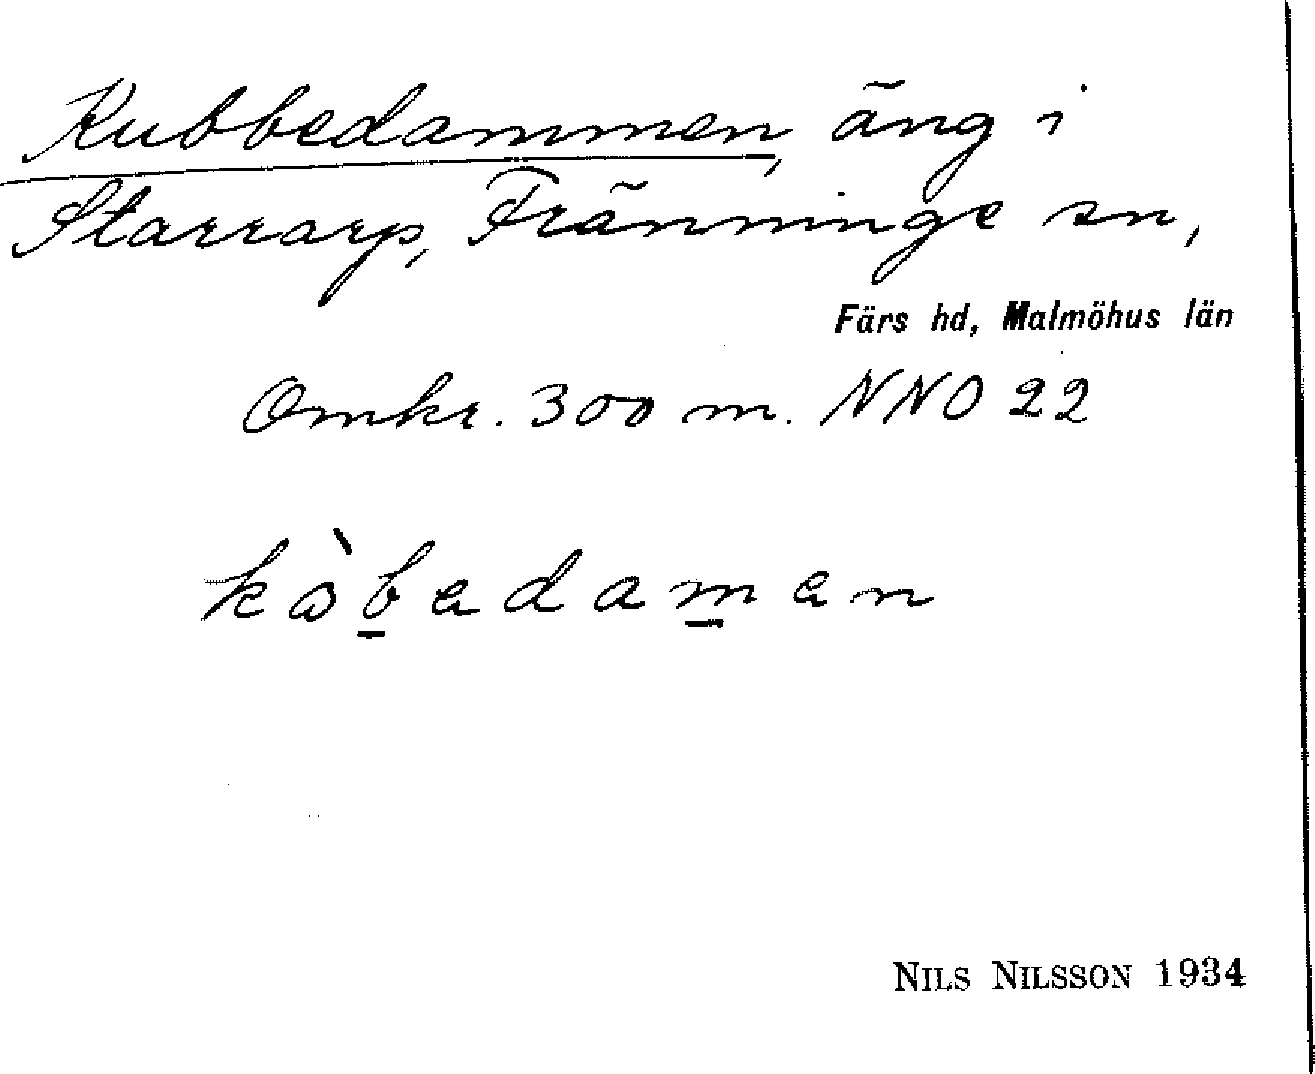 Kubbedammen, äng i
Starrarp, Fränninge sn,
Färs hd, Malmöhus län
Omkr. 300 m. NNO 22
kòbedamen
NILS NILSSON 1934